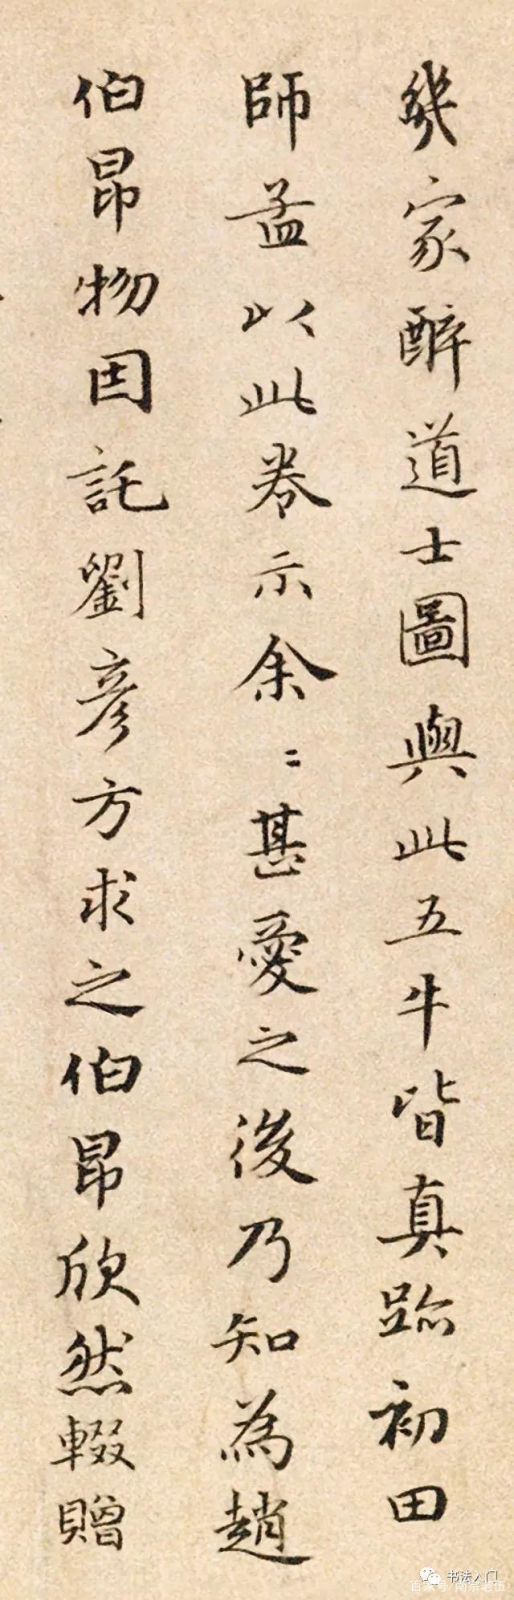 幾家醉道士圖與此五牛皆真跡初田
師孟以此卷示余〻甚愛之後乃知為趙
伯昂物因託劉彥方求之伯昂欣然輟贈
书法入门